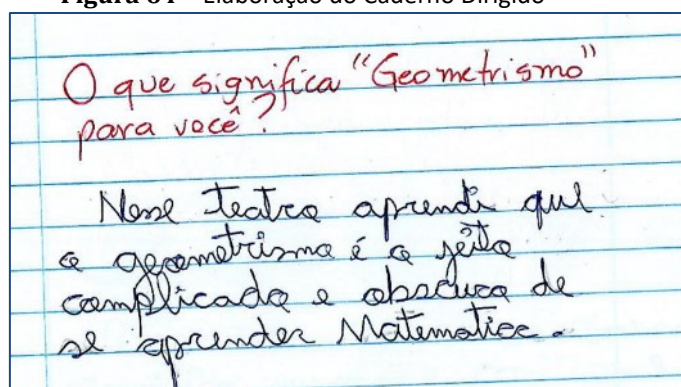 Elaboração do Caderno Dirigido
O que significa "Geometrismo"
para você?
Nesse teatro aprendi que
o geometrismo é o jeito
complicado e obscuro de
se aprender Matematica.